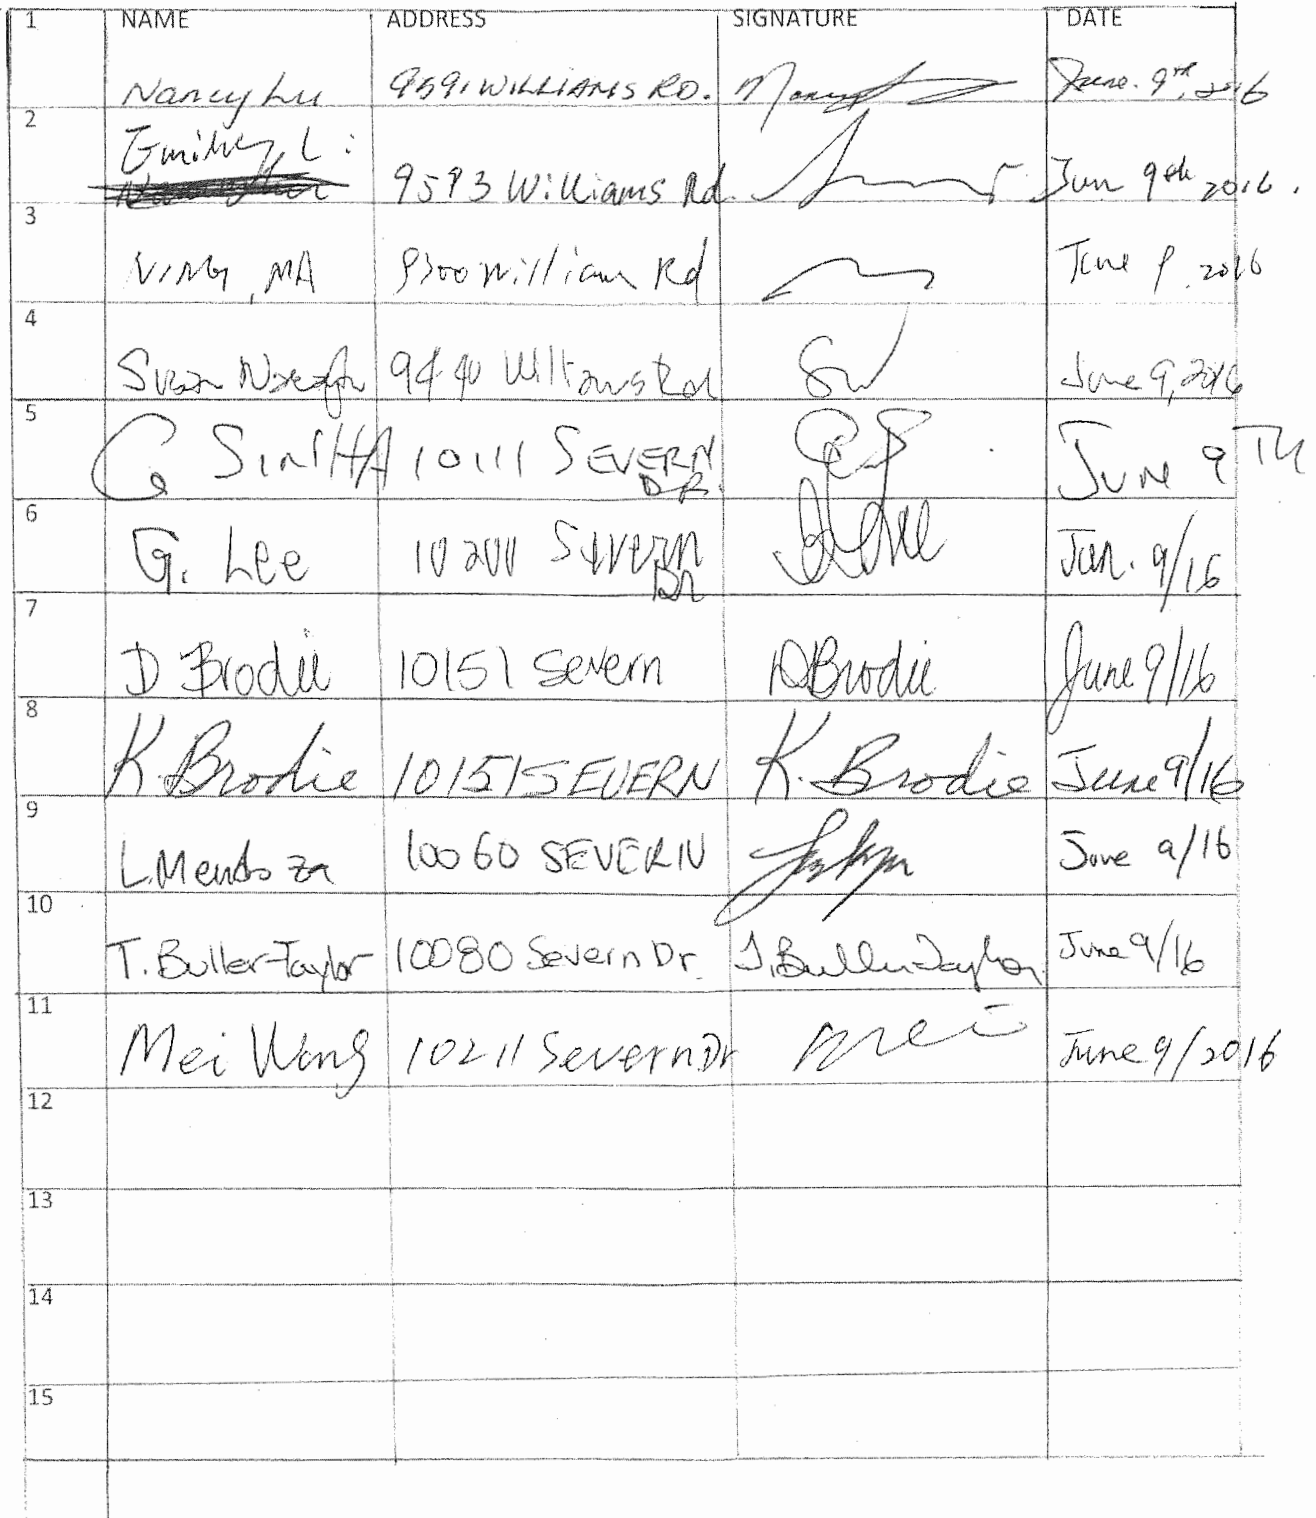 1 NAME ADDRESS SIGNATURE DATE
Nancy Lu 9591 WILLIAMS RD. June. 9th, 2016
2
Emily Li 9593 Williams Rd. Jun 9th, 2016.
3
NING, MA 9300 William Rd June 9, 2016
4
Susan 9440 Williams Rd SW June 9, 2016
5
G SINHA 10111 SEVERN JUNE 9TH
DR.
6
G. Lee 10200 Severn Jun. 9/16
Dr
7
D Brodie 10151 Severn D Brodie June 9/16
8
K. Brodie 10151 SEVERN K. Brodie June 9/16
9
L. Mendoza 10060 SEVERN June 9/16
10
T. Buller-Taylor 10080 Severn Dr. T. Buller-Taylor June 9/16
11
Mei Wong 10211 Severn Dr Mei June 9/2016
12
13
14
15